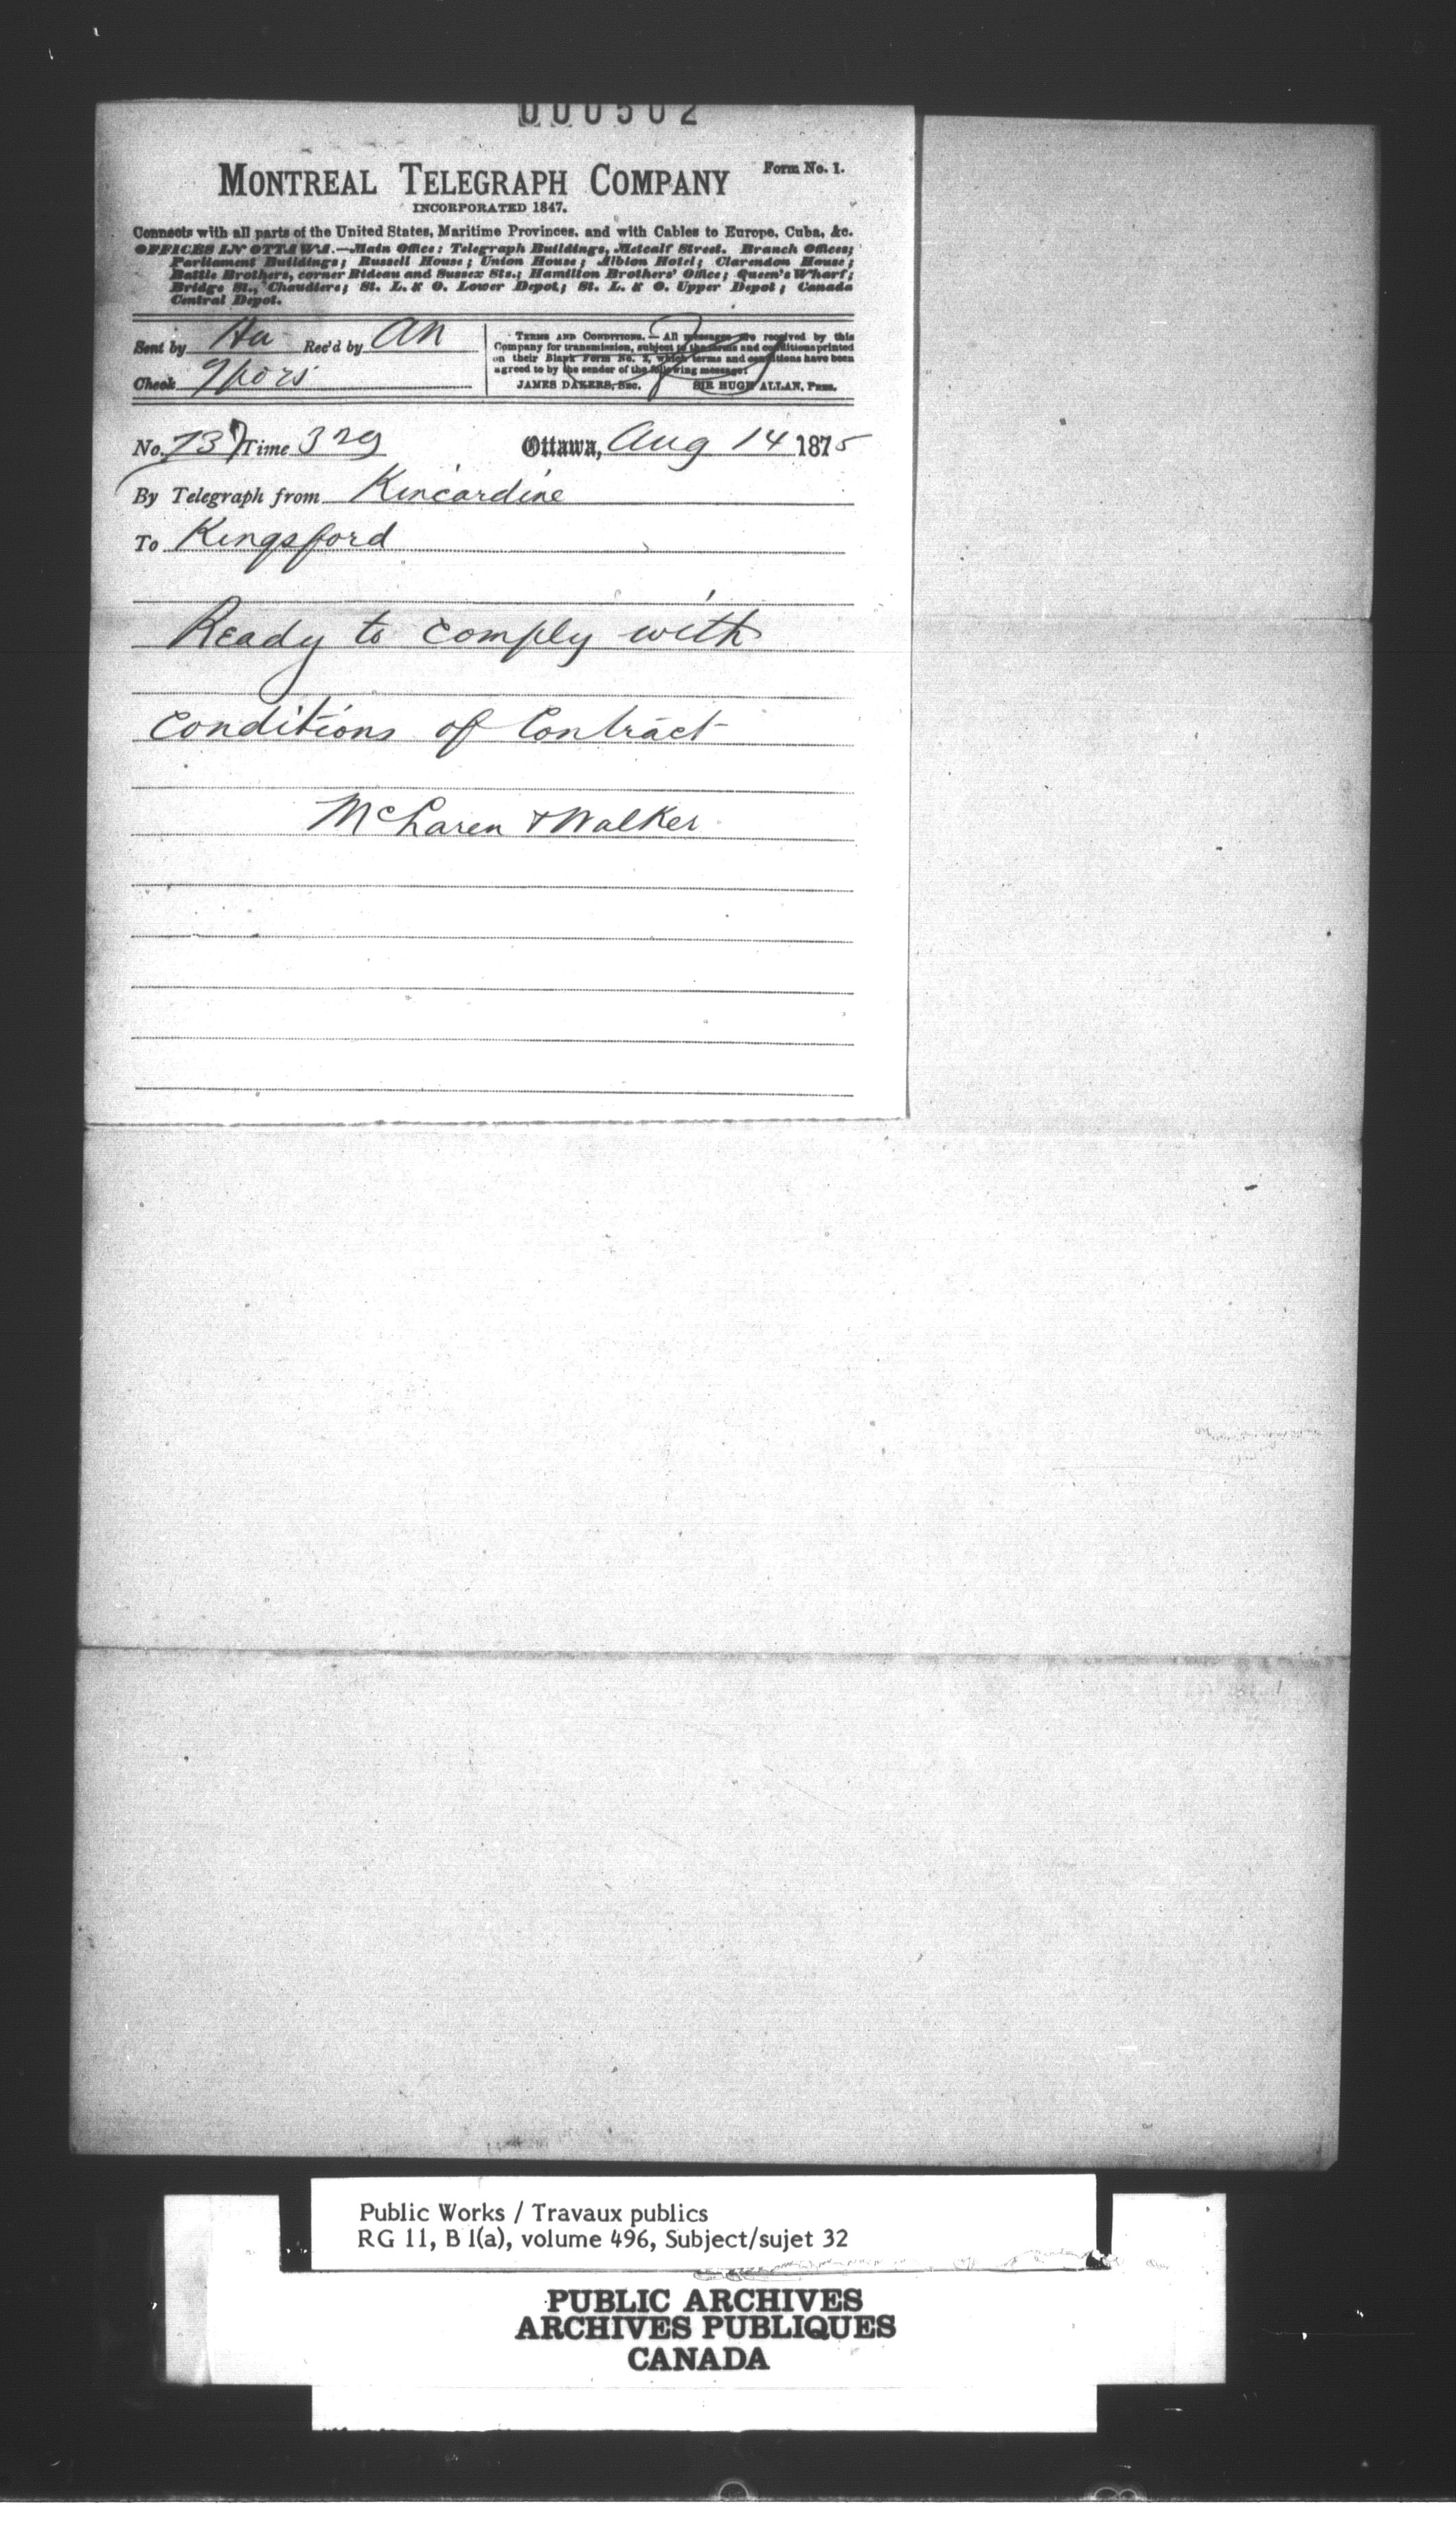 000502
MONTREAL TELEGRAPH COMPANY Form No. 1.
INCORPORATED 1847.
Connects with all parts of the United States, Maritime Provinces, and with Cables to Europe, Cuba, &c.
OFFICES IN OTTAWA.—Main Office: Telegraph Buildings, Metcalf Street. Branch Offices;
Parliament Buildings; Russell House; Union House; Albion Hotel; Clarendon House;
Battle Brothers, corner Rideau and Sussex Sts.; Hamilton Brothers' Office; Queen's Wharf;
Bridge St., Chaudiere; St. L. & O. Lower Depot; St. L. & O. Upper Depot; Canada
Central Depot.
Sent by Ha Rec'd by An
Check
TERMS AND CONDITIONS.—All messages are received by this
Company for transmission, subject to the terms and conditions printed
on their Blank Form No. 2, which terms and conditions have been
agreed to by the sender of the following message:
JAMES DAKERS, Sec. SIR HUGH ALLAN, Pres.
No. 737 Time 329 Ottawa, Aug 14 1875
By Telegraph from Kincardine
To Kingsford
Ready to comply with
conditions of Contract
McLaren & Walker
Public Works / Travaux publics
RG 11, B 1(a), volume 496, Subject/sujet 32
PUBLIC ARCHIVES
ARCHIVES PUBLIQUES
CANADA